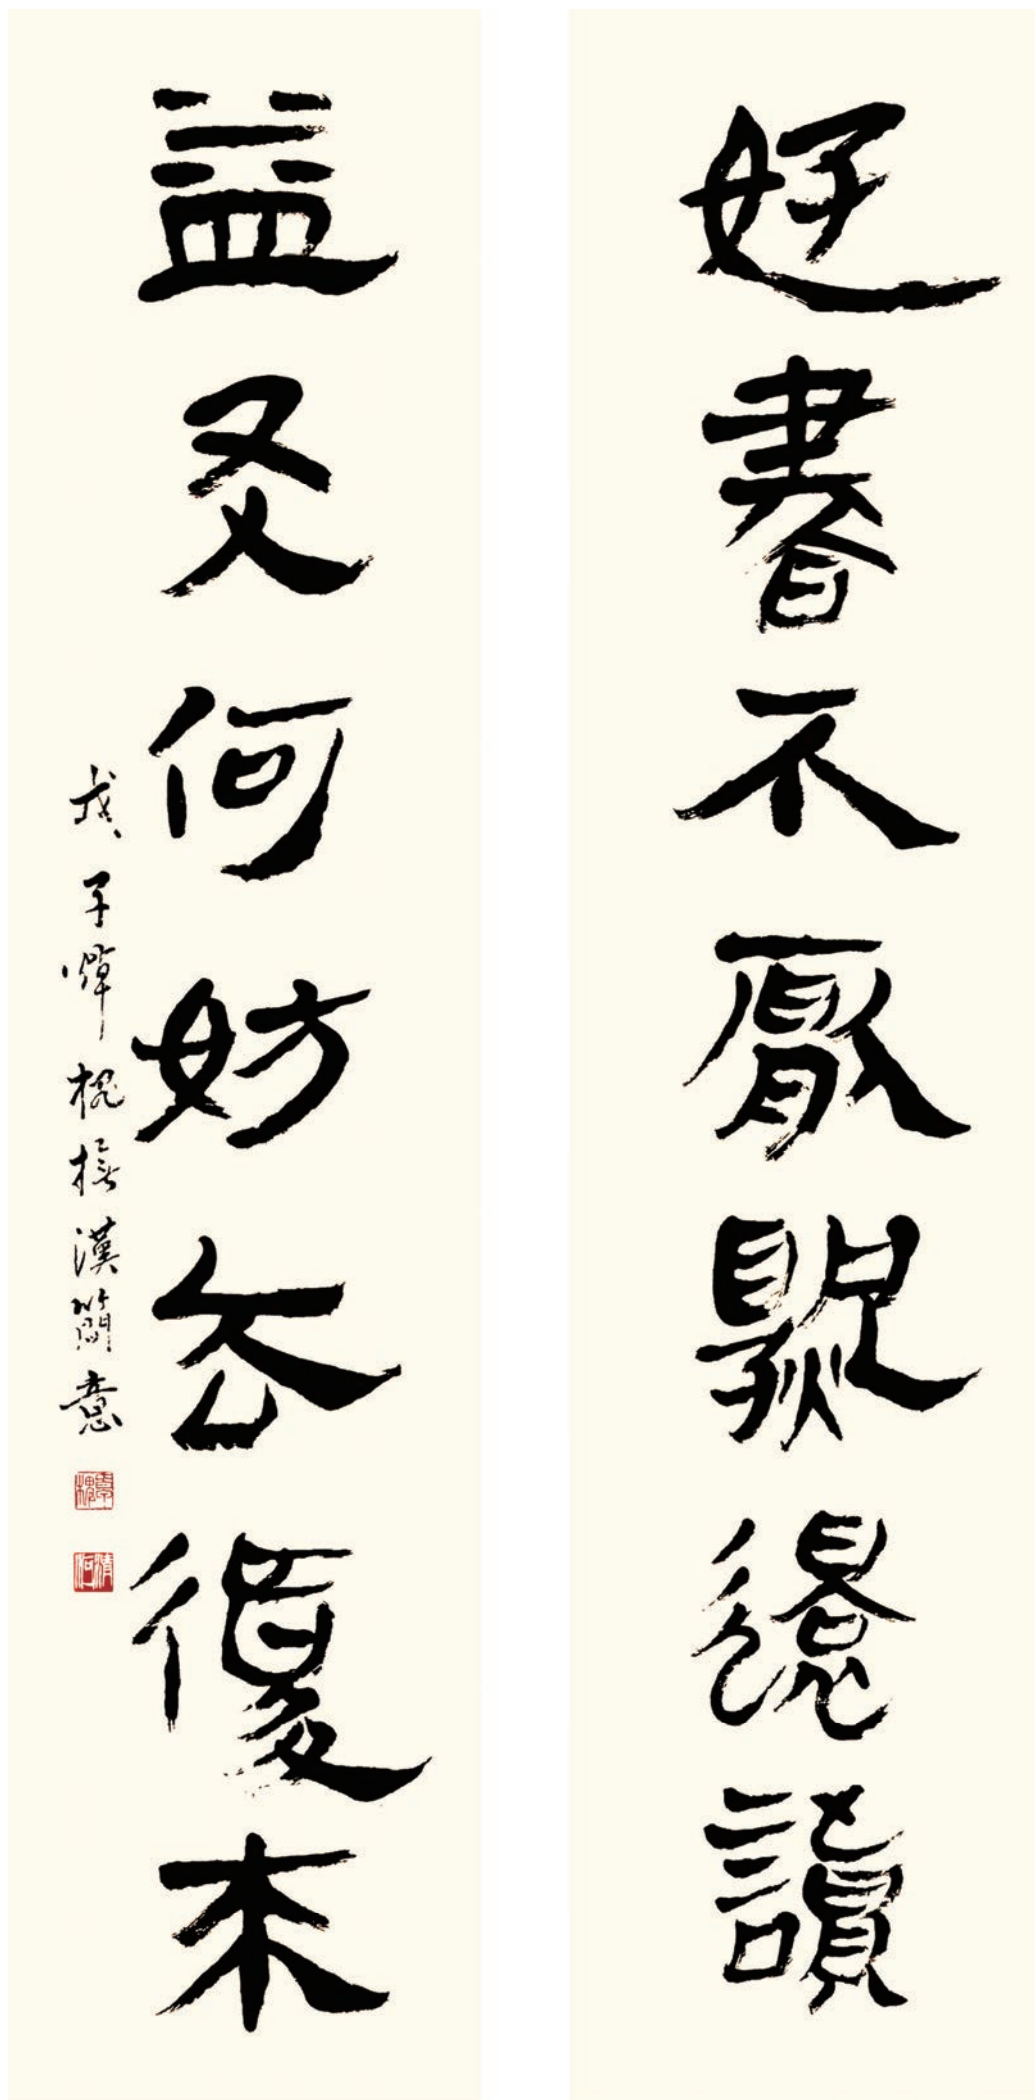 好書不厭還讀
益友何妨去復來
戊子槐漢簡意